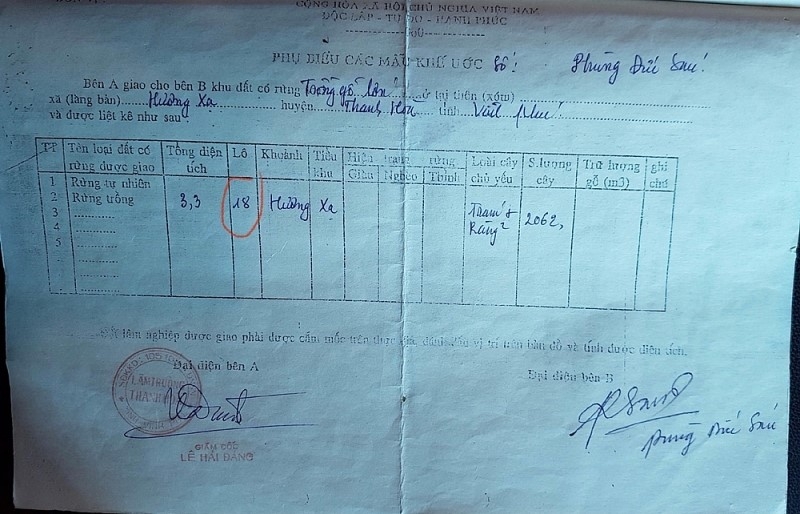 CỘNG HÒA XÃ HỘI CHỦ NGHĨA VIỆT NAM
ĐỘC LẬP - TỰ DO - HẠNH PHÚC
PHỤ BIỂU CÁC MẪU KHẾ ƯỚC Số: Phùng Đức Sửu.
Bên A giao cho bên B khu đất có rừng Trồng gỗ lớn ở tại thôn (xóm)
xã (làng bản) Hương Xạ huyện Thanh Hoà tỉnh Vĩnh Phú
và được liệt kê như sau:
TT Tên loại đất có rừng được giao Tổng diện tích Lô Khoảnh Tiểu khu Hiện trạng rừng Giàu Nghèo Thịnh Loài cây chủ yếu S.lượng cây Trữ lượng gỗ (m3) ghi chú
1 Rừng tự nhiên
2 Rừng trồng 3,3 18 Hương Xạ 2062,
3
4
5
Đất lâm nghiệp được giao phải được cắm mốc trên thực địa, đánh dấu vị trí trên bản đồ và tính được diện tích.
Đại diện bên A Đại diện bên B
LÂM TRƯỜNG
GIÁM ĐỐC
LÊ HẢI ĐANG
Phùng Đức Sửu